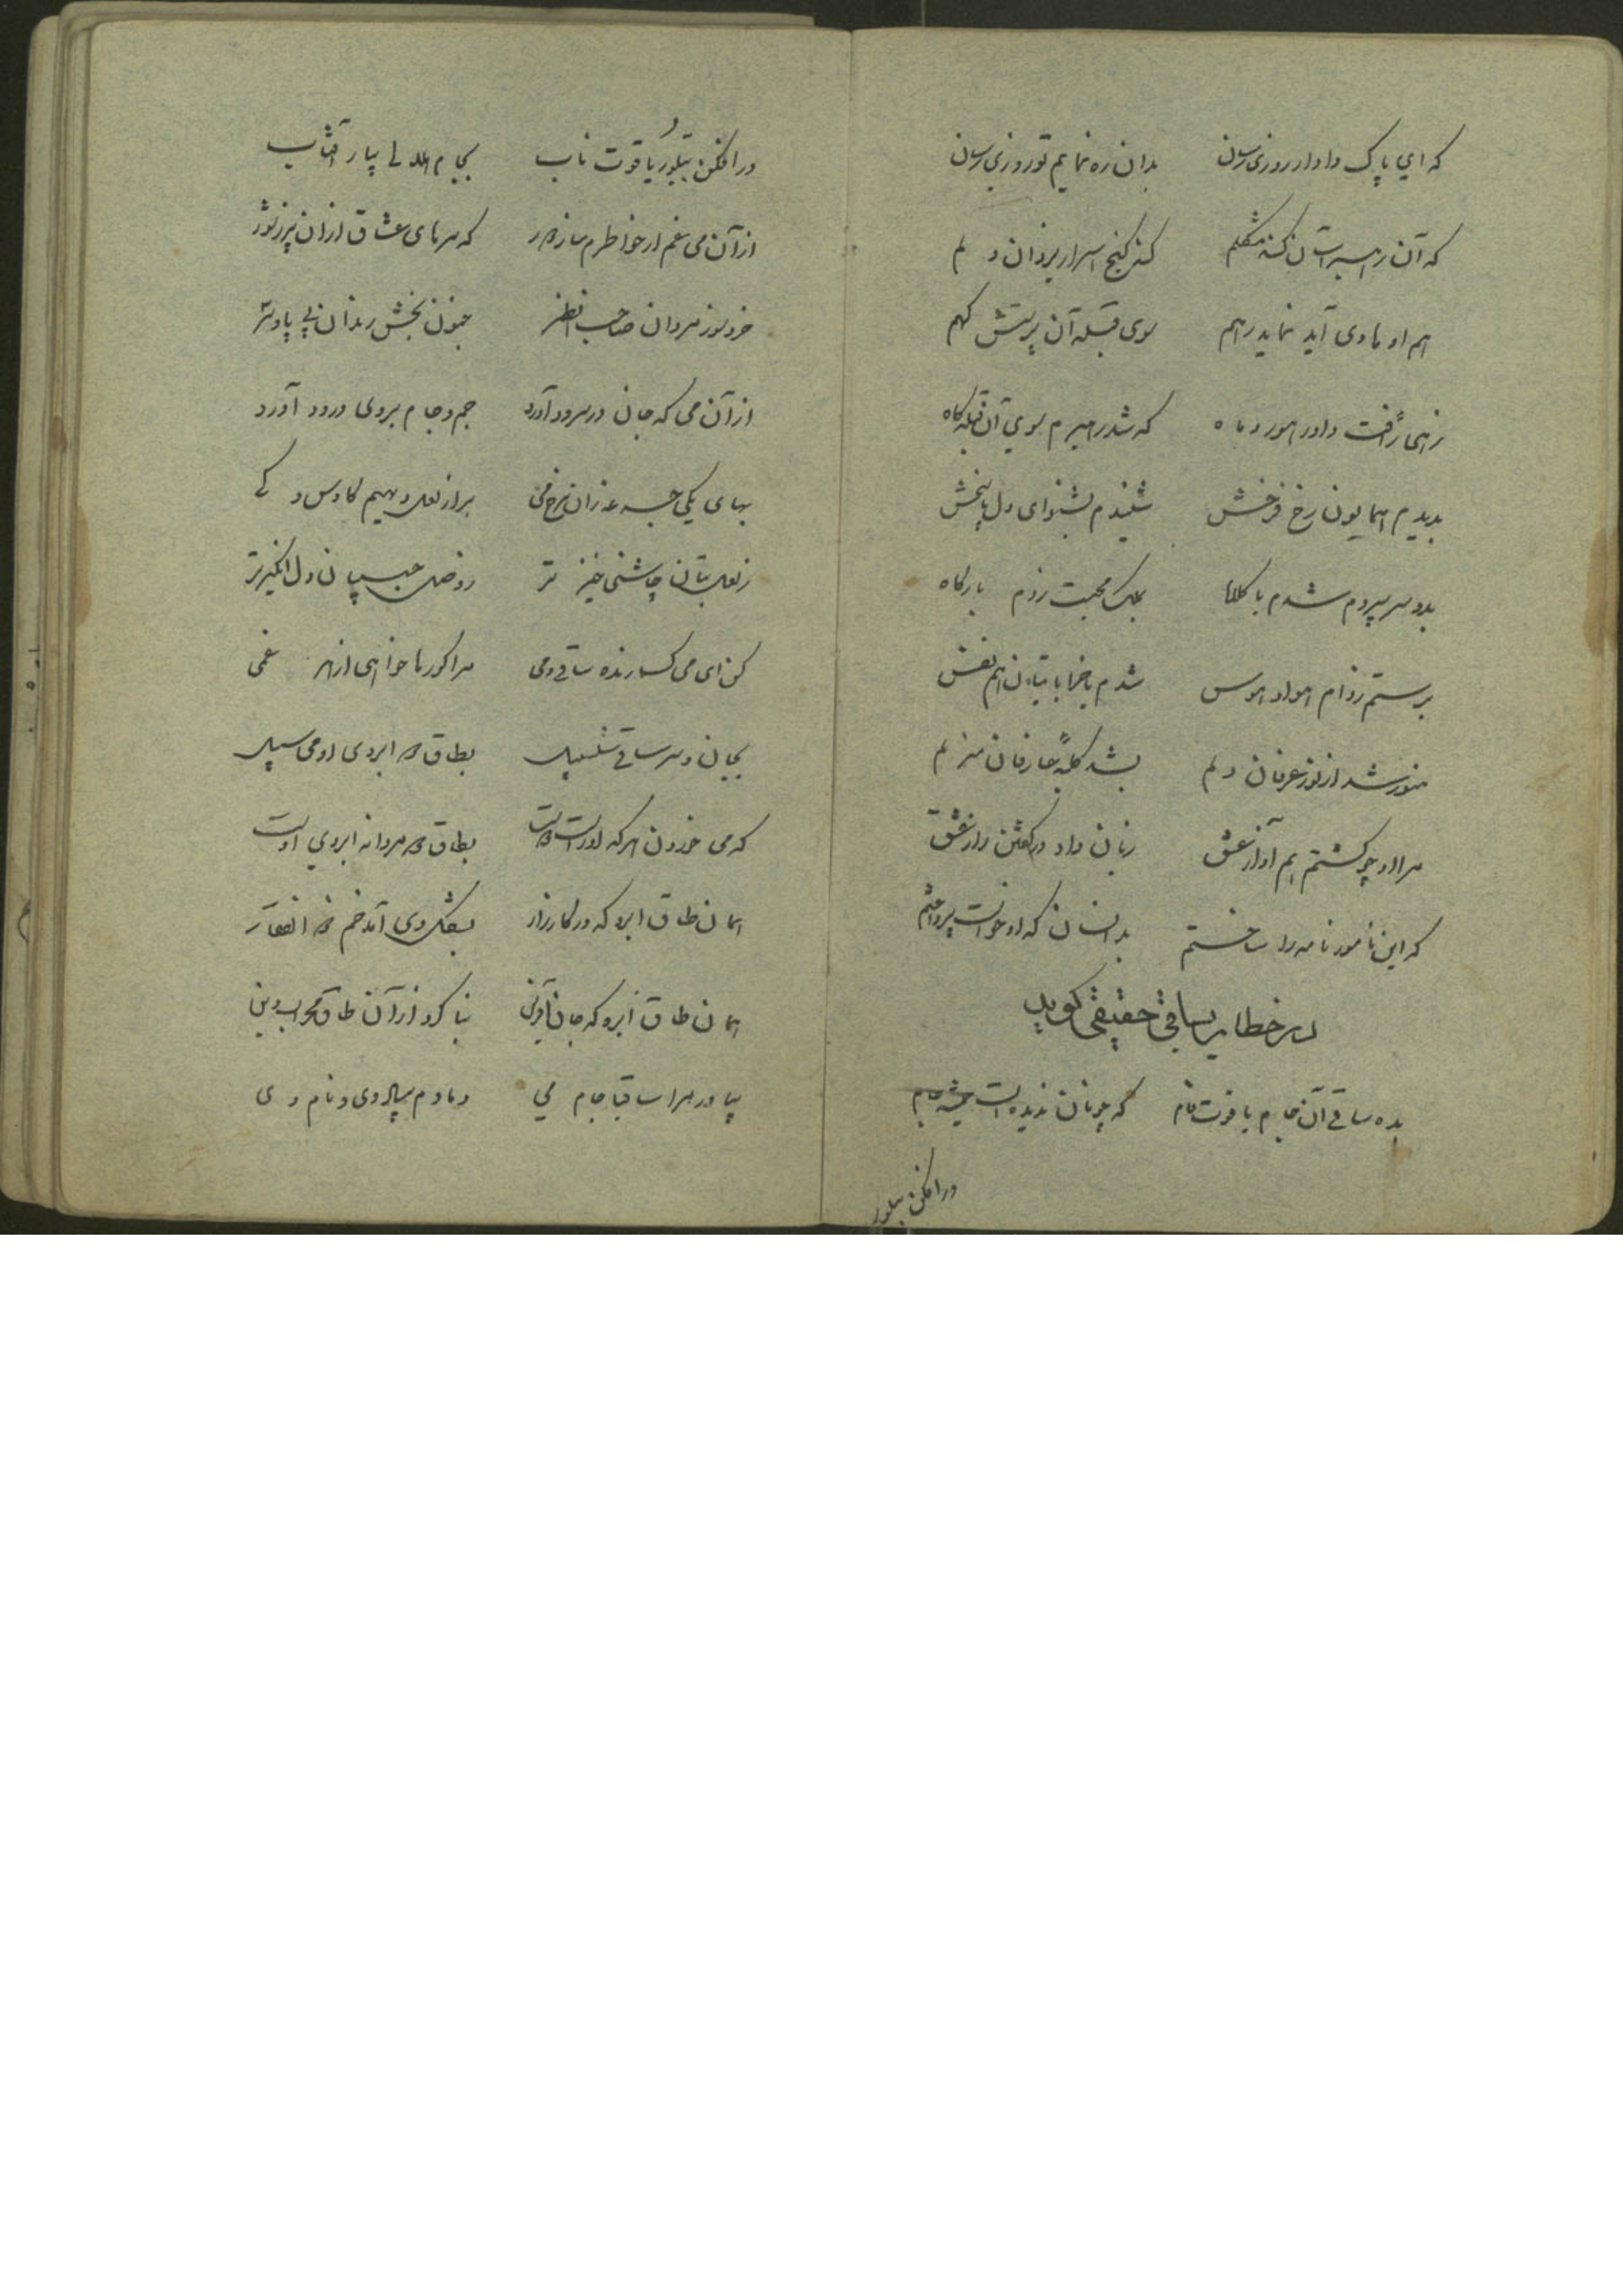 که ای پاک دادار روزی رسان بدان ره نمایم تو روزی رسان
که آن راهبر آسان کند مشکلم کند گنج اسرار یزدان دلم
هم او هادی آید نماید رهم سوی قبله آن پرستش گهم
زهی رأفت داور هور و ماه که شد رهبرم سوی آن قبله گاه
بدیدم همایون رخ فرخش شنیدم بشنوای دل پاسخش
بدو سر سپردم شدم با کلاه بملک محبت زدم بارگاه
برستم ز دام هوا و هوس شدم با خراباتیان هم نفس
منور شد از نور عرفان دلم بشد کلبهٔ عارفان منزلم
مرا او چو گشتم هم آواز عشق زبان داد در گفتن راز عشق
که این نامور نامه را ساختم بدانسان که او خواست پرداختم
در خطاب بساقی حقیقی گوید
بده ساقی آن جام یاقوت فام که چونان ندیده است جمشید جام
در افکن ببلور
در افکن ببلور یاقوت ناب بجام هلالی بیار آفتاب
از آن می غم از خاطرم ساز دور که سرهای عشاق از آن پر ز شور
خرد سوز مردان صاحب نظر جنون بخش رندان بی پا و سر
از آن می که جان در سرود آورد جم و جام بروی درود آورد
بهای یکی جرعه زان نرخ می برازنده دیهیم کاوس و کی
ز لعل بتان چاشنی خیز تر ز وصل حبیبان دل انگیز تر
کن ای می گسارنده ساقی دمی مرا گور ها خواهی از هر غمی
بجان و سر ساقی سلسبیل بطاق دو ابروی او می سبیل
که می خوردن هر که او راست دوست بطاق دو مردانه ابروی اوست
همان طاق ابرو که در کارزار بشکل وی آمد خم ذو الفقار
همان طاق ابرو که جان آفرین بنا کرد از آن طاق محراب دین
بیاور مرا ساقیا جام می دمادم بپالای و نام وی